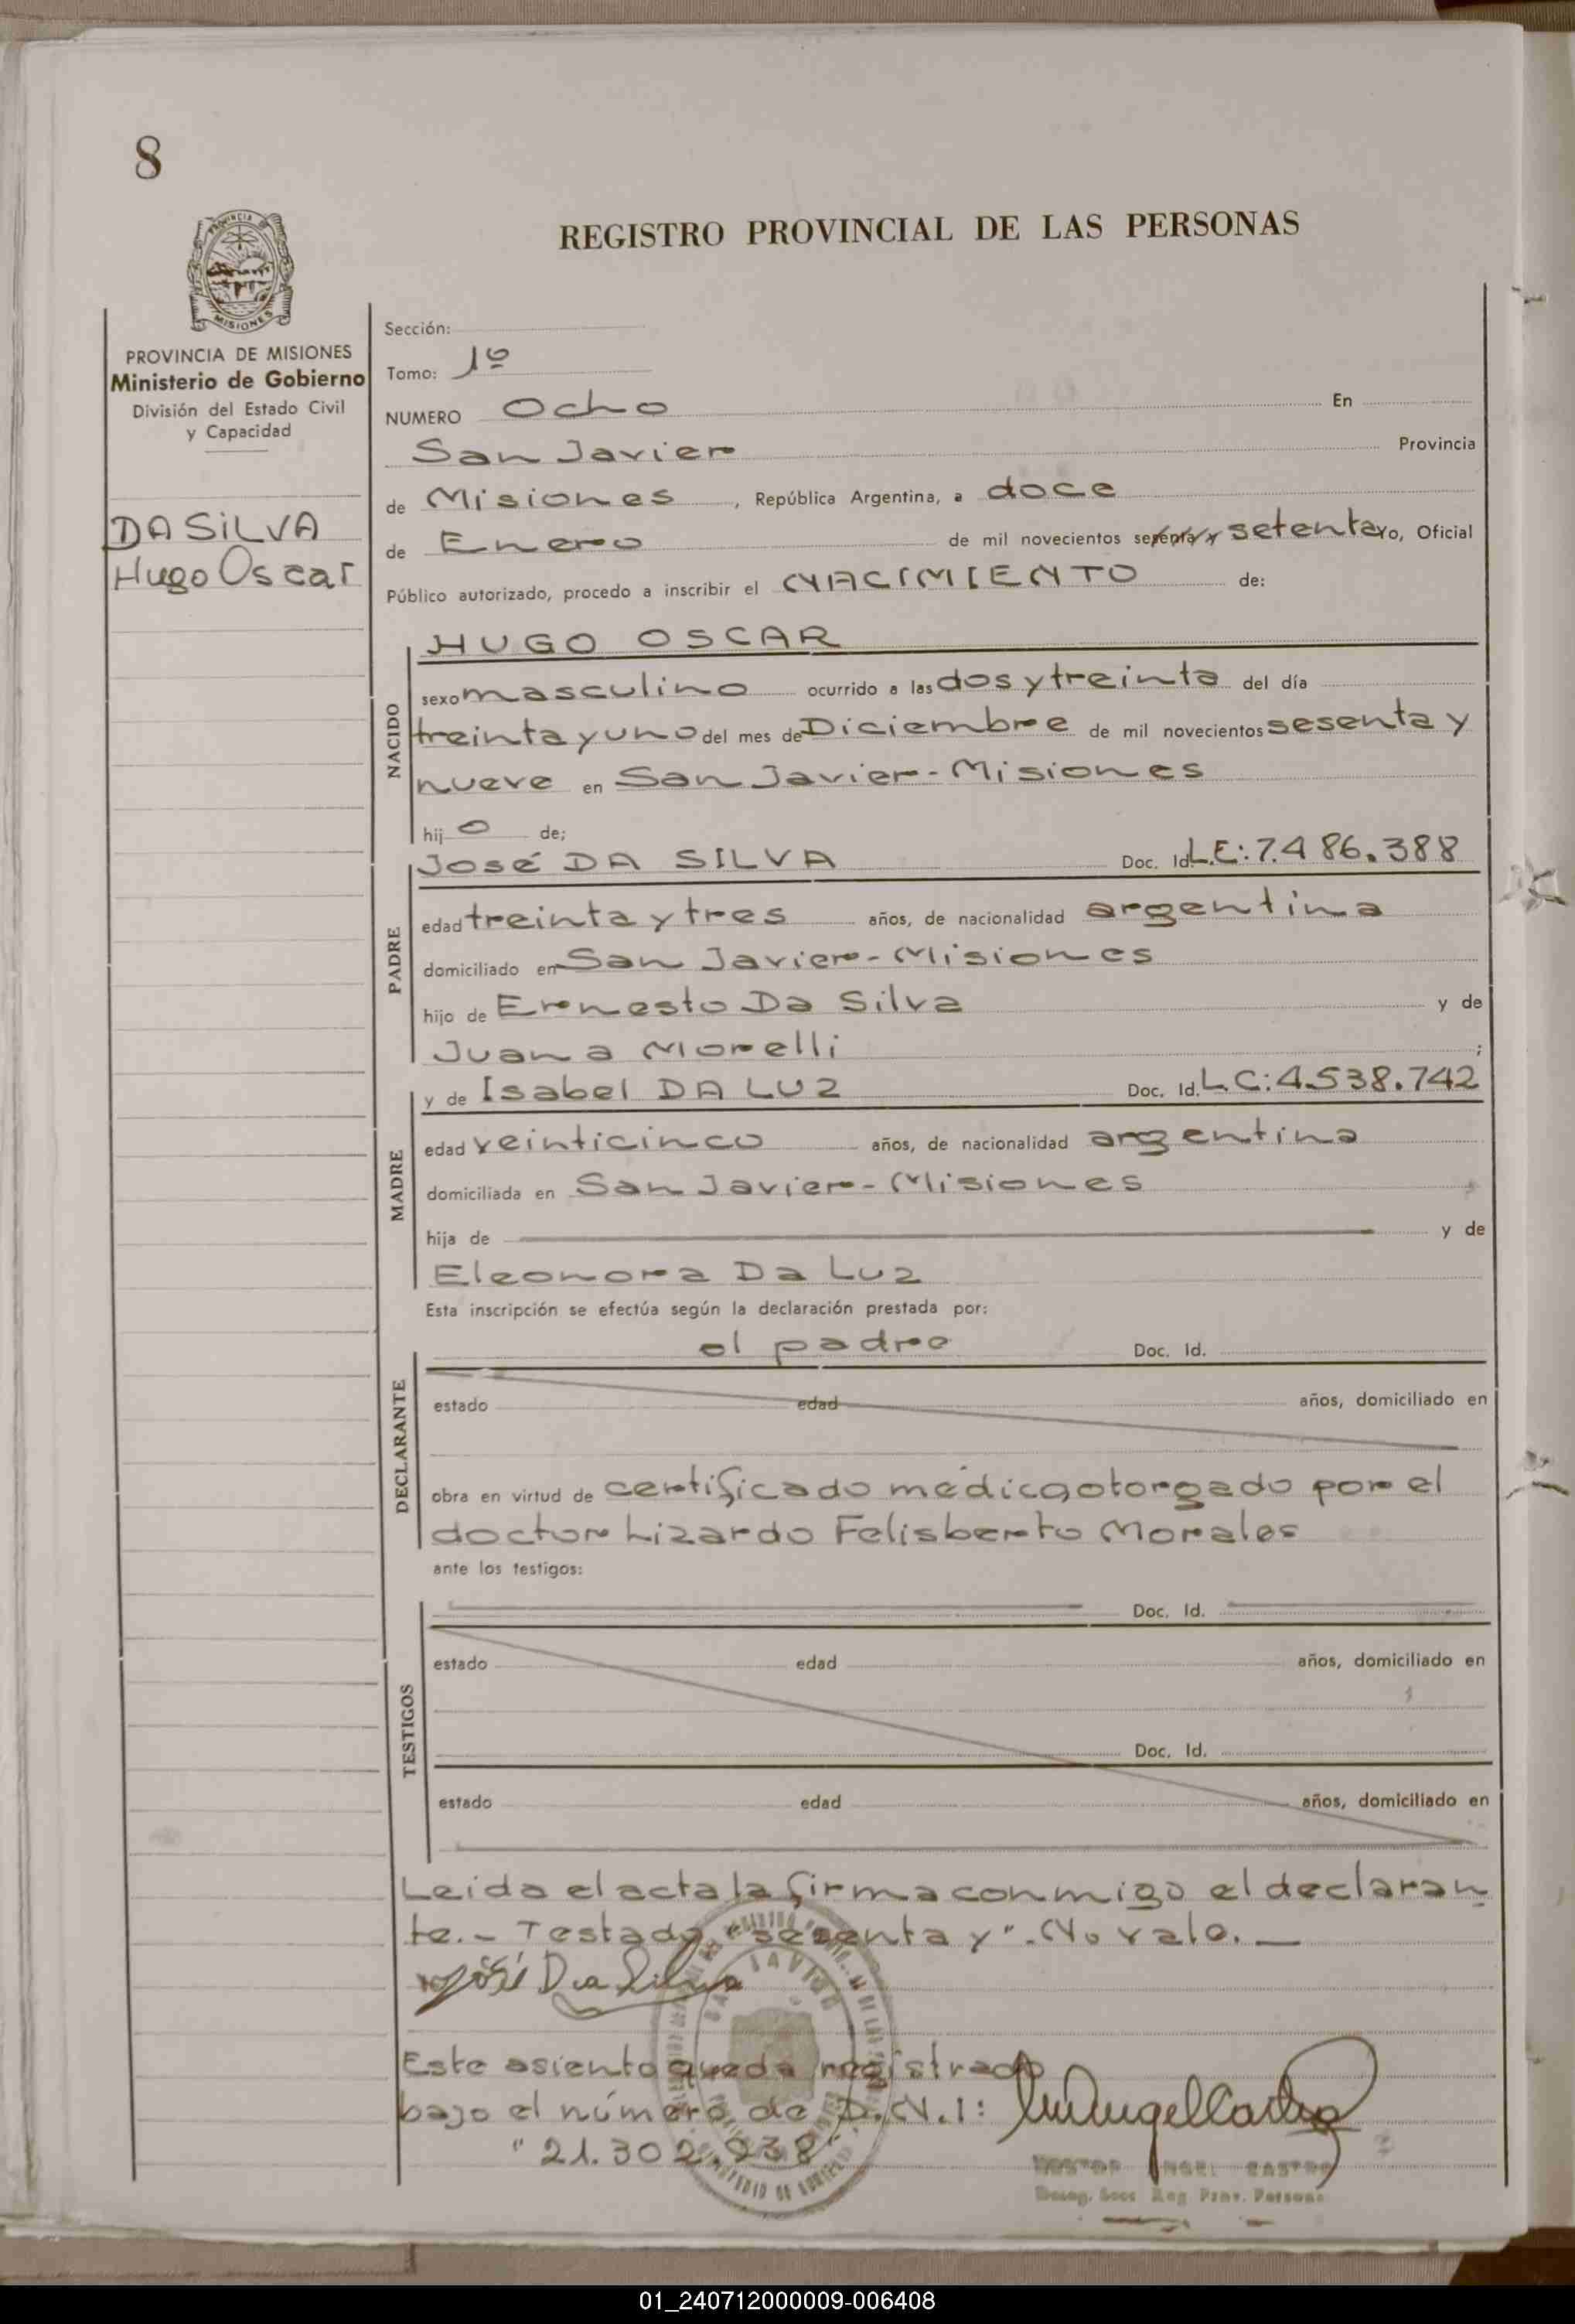 8
PROVINCIA
MISIONES
REGISTRO PROVINCIAL DE LAS PERSONAS
PROVINCIA DE MISIONES
Ministerio de Gobierno
División del Estado Civil
y Capacidad
DA SILVA
Hugo Oscar
Sección:
Tomo: 1º
NUMERO Ocho En
San Javier Provincia
de Misiones, República Argentina, a doce
de Enero de mil novecientos sesenta y setenta yo, Oficial
Público autorizado, procedo a inscribir el NACIMIENTO de:
NACIDO
HUGO OSCAR
sexo masculino ocurrido a las dos y treinta del día
treinta y uno del mes de Diciembre de mil novecientos sesenta y
nueve en San Javier - Misiones
hijo de;
PADRE
José DA SILVA Doc. Id. L.E: 7.486.388
edad treinta y tres años, de nacionalidad argentina
domiciliado en San Javier - Misiones
hijo de Ernesto Da Silva y de
Juana Morelli ;
MADRE
y de Isabel DA LUZ Doc. Id. L.C: 4.538.742
edad veinticinco años, de nacionalidad argentina
domiciliada en San Javier - Misiones
hija de y de
Eleonora Da Luz
Esta inscripción se efectúa según la declaración prestada por:
DECLARANTE
el padre Doc. Id.
estado edad años, domiciliado en
obra en virtud de certificado médico otorgado por el
doctor Lizardo Felisberto Morales
ante los testigos:
TESTIGOS
Doc. Id.
estado edad años, domiciliado en
Doc. Id.
estado edad años, domiciliado en
Leida el acta la firma conmigo el declaran
te. - Testado "sesenta y". No vale. —
José Da Silva
Este asiento queda registrado
bajo el número de D.N.I:
"21.302.938"
ANGEL CASTRO
Reg Prov. Persons
01_240712000009-006408